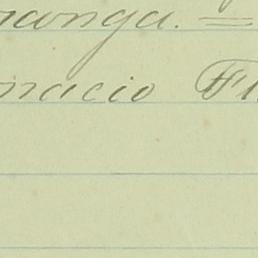 nanga. =
nacio Fl